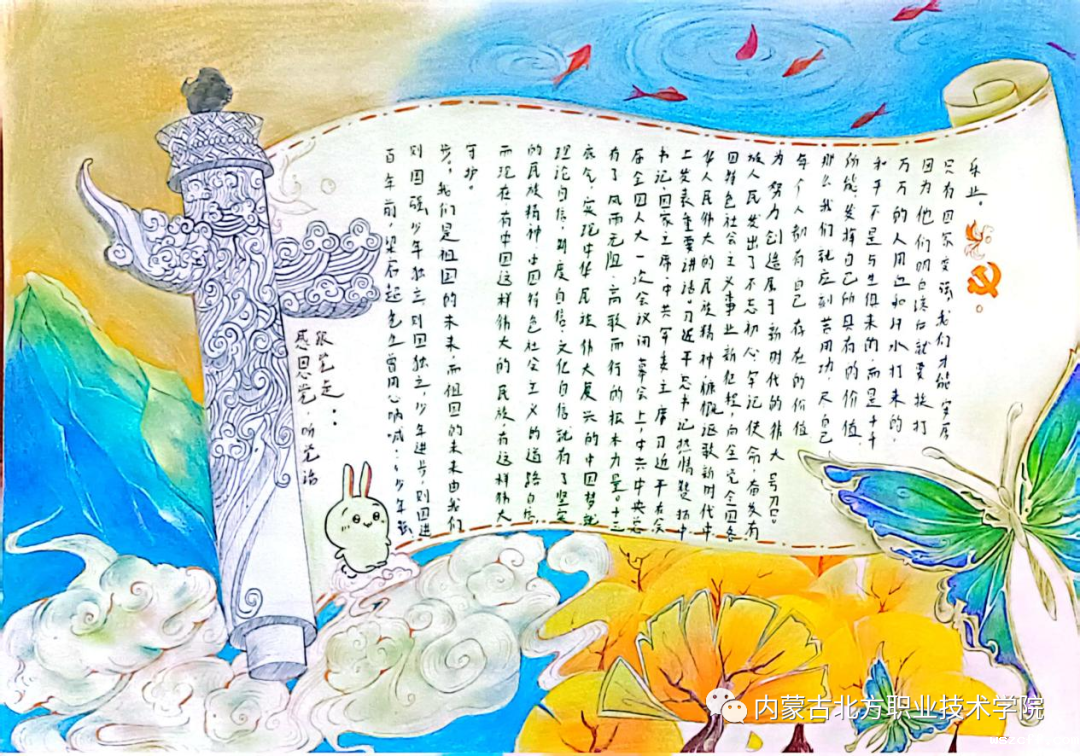 乐业。
只为国家变强,我们才能安居
因为他们明白落后就要挨打
万万的人用血和汗水打来的,
和平不是与生俱来的,而是千千
所能,发挥自己所具有的价值,
那么我们就应刻苦用功,尽自己
每个人都有自己存在的价值
为努力创造属于新时代的
族人民发出了不忘初心牢记使命奋发有
国特色社会主义事业新征程,向全党全国各
华人民伟大的民族精神慷慨讴歌新时代中
上发表重要讲话。习近平总书记热情赞扬中
书记,国家主席,中共军委主席习近平在会
届全国人大一次会议闭幕会上,中共中央总
有了风雨无阻、高歌前行的根本力量。十三
底气,实现中华民族伟大复兴的中国梦就
理论自信,制度自信,文化自信就有了坚实
的民族精神,中国特色社会主义的道路自信,
而现在有中国这样伟大的民族,有这样伟大
守护。
步。我们是祖国的未来,而祖国的未来由我们
则国强,少年独立则国独立,少年进步则国进
百年前,梁启超先生曾用心呐喊:“少年强
跟党走。
感恩党,听党话
内蒙古北方职业技术学院